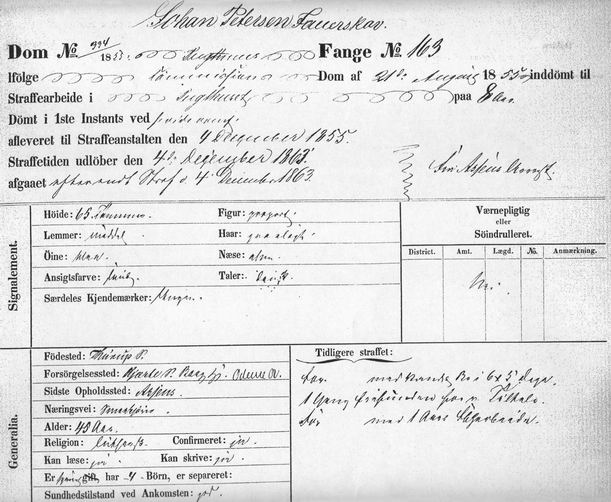 Johan Petersen Faurskov.
Dom № 994 1855 Fange № 163
Ifølge Commissions Dom af 21de August 1855 inddömt til
Straffearbeide i Tugthuset paa 8 Aar
Dömt i 1ste Instants ved
afleveret til Straffeanstalten den 4 December 1855
Straffetiden udlöber den 4de December 1863
afgaaet efter endt Straf d 4 December 1863.
Fra Assens Arrest.
Signalement.
Höide: 65 Tommer. Figur:
Lemmer: middel Haar:
Öine: blaa Næse:
Ansigtsfarve: Taler: Dansk
Særdeles Kjendemærker: Ingen.
Værnepligtig
eller
Söindrulleret.
District. Amt. Lægd. №. Anmærkning.
Nei
Generalia.
Födested: P.
Forsörgelsessted: Odense A.
Sidste Opholdssted: Assens
Næringsvei:
Alder: 43 Aar
Religion: luthersk Confirmeret: ja
Kan læse: ja Kan skrive: ja
Er gift har 4 Börn, er separeret:
Sundhedstilstand ved Ankomsten: god.
Tidligere straffet:
For med Vand og Bröd 6 x 5 Dage
1 Gang for Tiltale.
For med 1 Aars